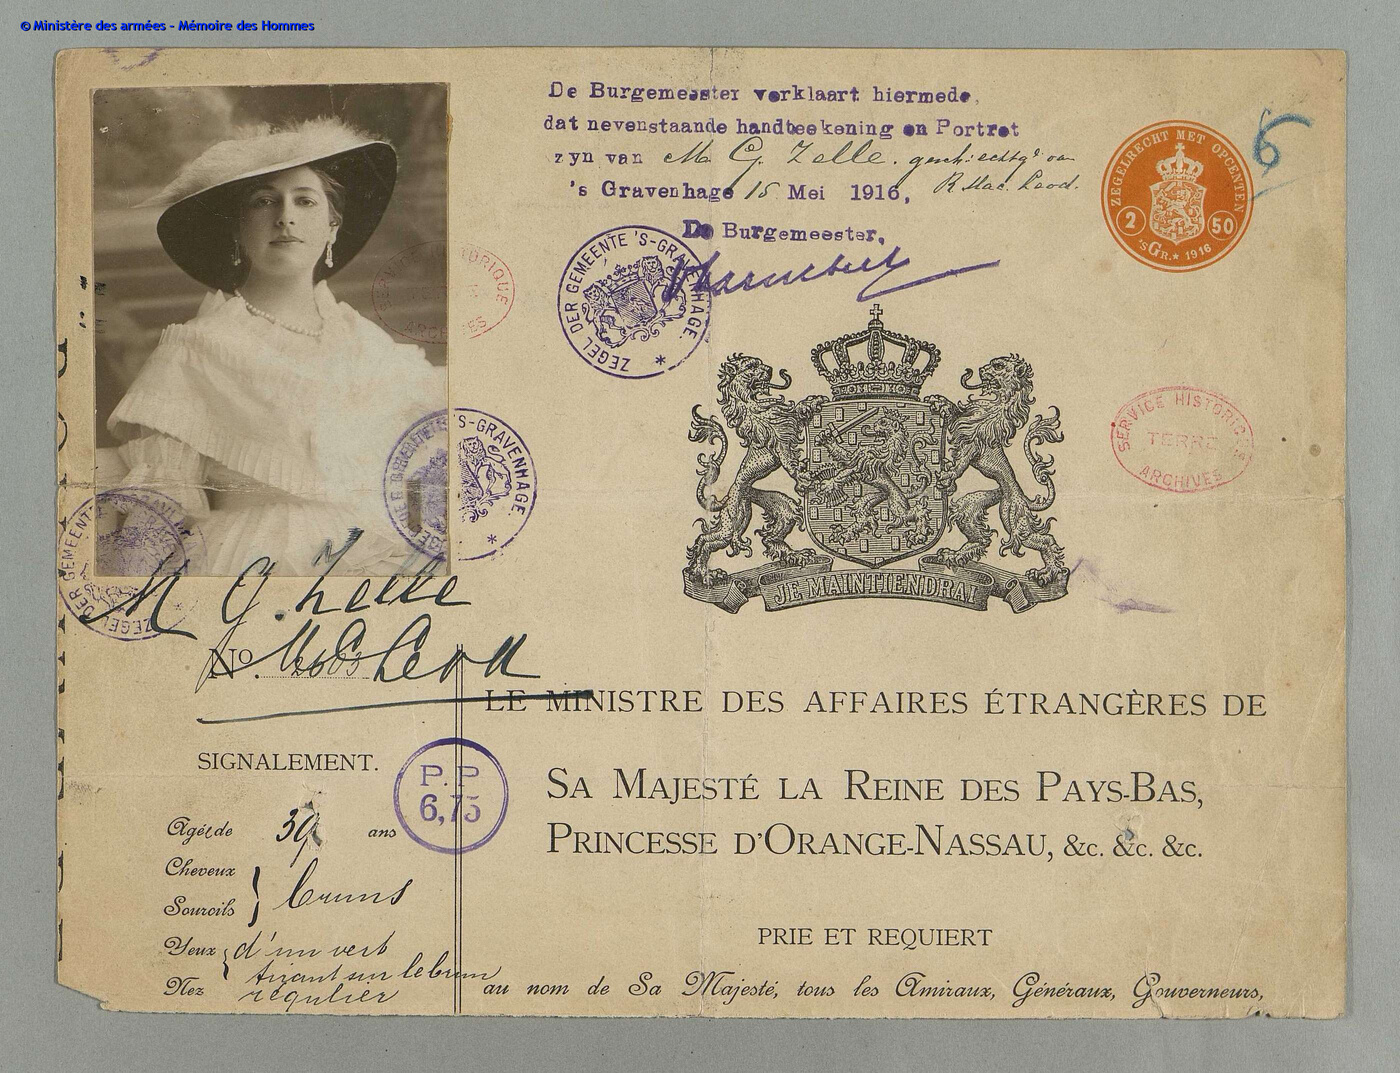 © Ministère des armées - Mémoire des Hommes
De Burgemeester verklaart hiermede,
dat nevenstaande handteekening en Portret
zyn van M. G. Zelle, gesch. echtgᵉ van
R. Mac. Leod.
's Gravenhage 15 Mei 1916,
De Burgemeester,
ZEGEL DER GEMEENTE 'S-GRAVENHAGE.
ZEGELRECHT MET OPCENTEN
2 50
'sGR. * 1916
6
SERVICE HISTORIQUE
ARCHIVES
SERVICE HISTORIQUE
TERRE
ARCHIVES
ZEGEL DER GEMEENTE 'S-GRAVENHAGE.
ZEGEL DER GEMEENTE 'S-GRAVENHAGE
JE MAINTIENDRAI
M G. Zelle
Mc Leod
No.
LE MINISTRE DES AFFAIRES ÉTRANGÈRES DE
SA MAJESTÉ LA REINE DES PAYS-BAS,
PRINCESSE D'ORANGE-NASSAU, &c. &c. &c.
PRIE ET REQUIERT
au nom de Sa Majesté, tous les Amiraux, Généraux, Gouverneurs,
SIGNALEMENT.
P.P
6,75
Agé de 39 ans
Cheveux
Sourcils } bruns
Yeux { d'un vert
tirant sur le brun
Nez régulier